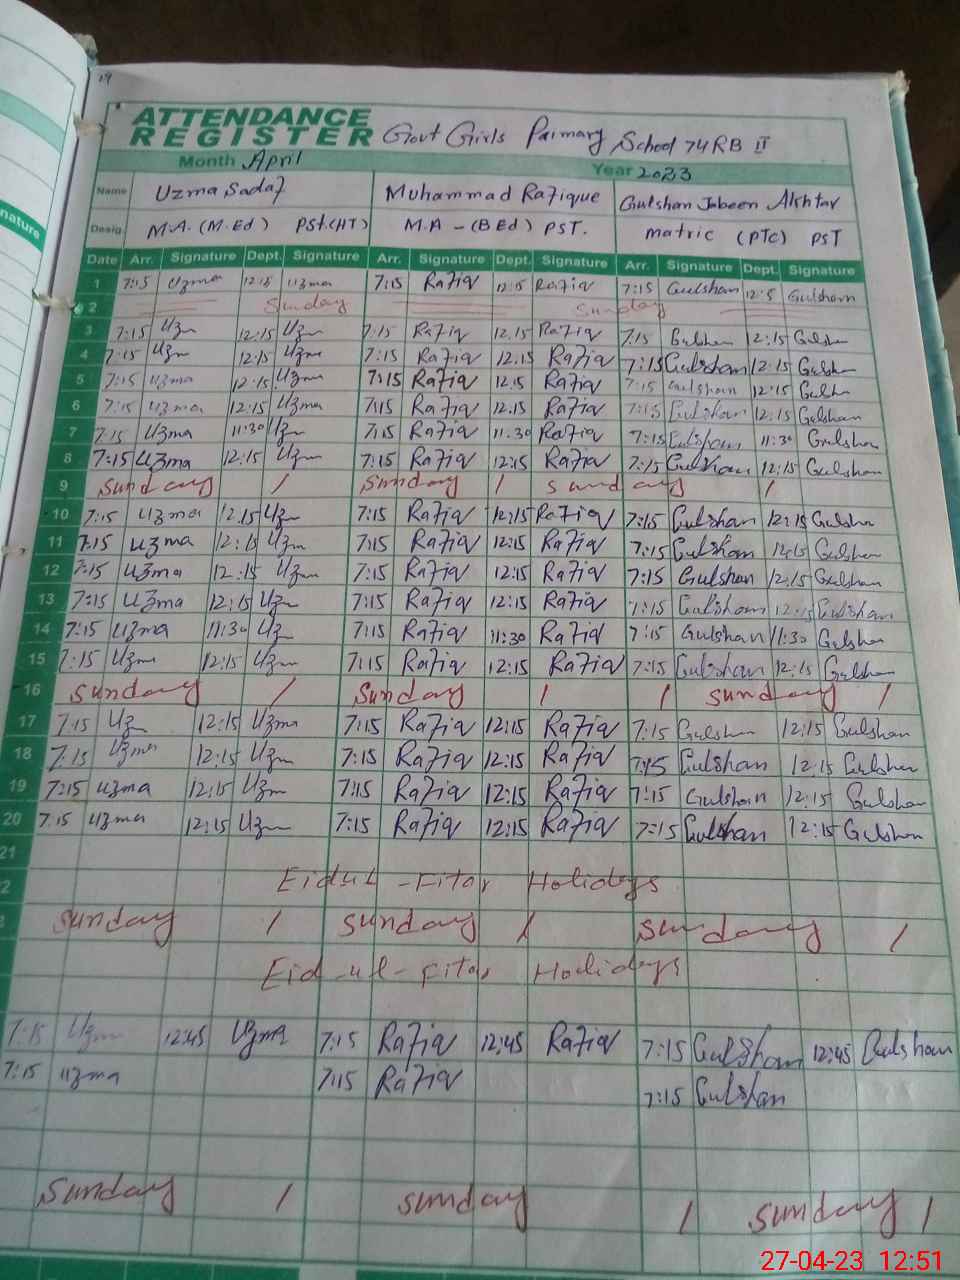 19
ATTENDANCE
REGISTER Govt Girls Primary School 74RB II
Month April Year 2023
Name Uzma Sadaf Muhammad Rafique Gulshan Jabeen Akhtar
Desig. M.A. (M.Ed) PSt.(HT) M.A - (B Ed) PST. Matric (PTC) PST
Date Arr. Signature Dept. Signature Arr. Signature Dept. Signature Arr. Signature Dept. Signature
1 7:15 Uzma 12:15 Uzma 7:15 Rafiq 12:5 Rafiq 7:15 Gulshan 12:5 Gulshan
2 Sunday Sunday
3 7:15 Uzm 12:15 Uzm 7:15 Rafiq 12.15 Rafiq 7:15 Gulshan 12:15 Gulshn
4 7:15 Uzm 12:15 Uzma 7:15 Rafiq 12.15 Rafiq 7:15 Gulshan 12:15 Gulshn
5 7:15 Uzma 12:15 Uzma 7:15 Rafiq 12:5 Rafiq 7:15 Gulshan 12:15 Gulshn
6 7:15 Uzma 12:15 Uzma 7:15 Rafiq 12.15 Rafiq 7:15 Gulshan 12:15 Gulshan
7 7:15 Uzma 11:30 Uzm 7:15 Rafiq 11:30 Rafiq 7:15 Gulshan 11:30 Gulshan
8 7:15 Uzma 12:15 Uzm 7:15 Rafiq 12:15 Rafiq 7:15 Gulshan 12:15 Gulshan
9 Sunday / Sunday / Sunday /
10 7:15 Uzma 12.15 Uzm 7:15 Rafiq 12:15 Rafiq 7:15 Gulshan 12:15 Gulshan
11 7:15 Uzma 12:15 Uzm 7:15 Rafiq 12:15 Rafiq 7:15 Gulshan 12:15 Gulshan
12 7:15 Uzma 12:15 Uzm 7:15 Rafiq 12:15 Rafiq 7:15 Gulshan 12:15 Gulshan
13 7:15 Uzma 12:15 Uzm 7:15 Rafiq 12:15 Rafiq 7:15 Gulshan 12:15 Gulshan
14 7:15 Uzma 11:30 Uz 7:15 Rafiq 11:30 Rafiq 7:15 Gulshan 11:30 Gulshan
15 7:15 Uzm 12:15 Uzm 7:15 Rafiq 12:15 Rafiq 7:15 Gulshan 12:15 Gulshan
16 Sunday / Sunday / / Sunday /
17 7:15 Uzm 12:15 Uzma 7:15 Rafiq 12:15 Rafiq 7:15 Gulshan 12:15 Gulshan
18 7:15 Uzma 12:15 Uzm 7:15 Rafiq 12:15 Rafiq 7:15 Gulshan 12:15 Gulshan
19 7:15 Uzma 12:15 Uzm 7:15 Rafiq 12:15 Rafiq 7:15 Gulshan 12:15 Gulshan
20 7:15 Uzma 12:15 Uzm 7:15 Rafiq 12:15 Rafiq 7:15 Gulshan 12:15 Gulshan
21
Eidul-Fitar Holidays
Sunday / Sunday / Sunday /
Eid-ul-Fitar Holidays
7:15 Uzm 12:45 Uzma 7:15 Rafiq 12:45 Rafiq 7:15 Gulshan 12:45 Gulshan
7:15 Uzma 7:15 Rafiq 7:15 Gulshan
Sunday / Sunday / Sunday /
27-04-23 12:51